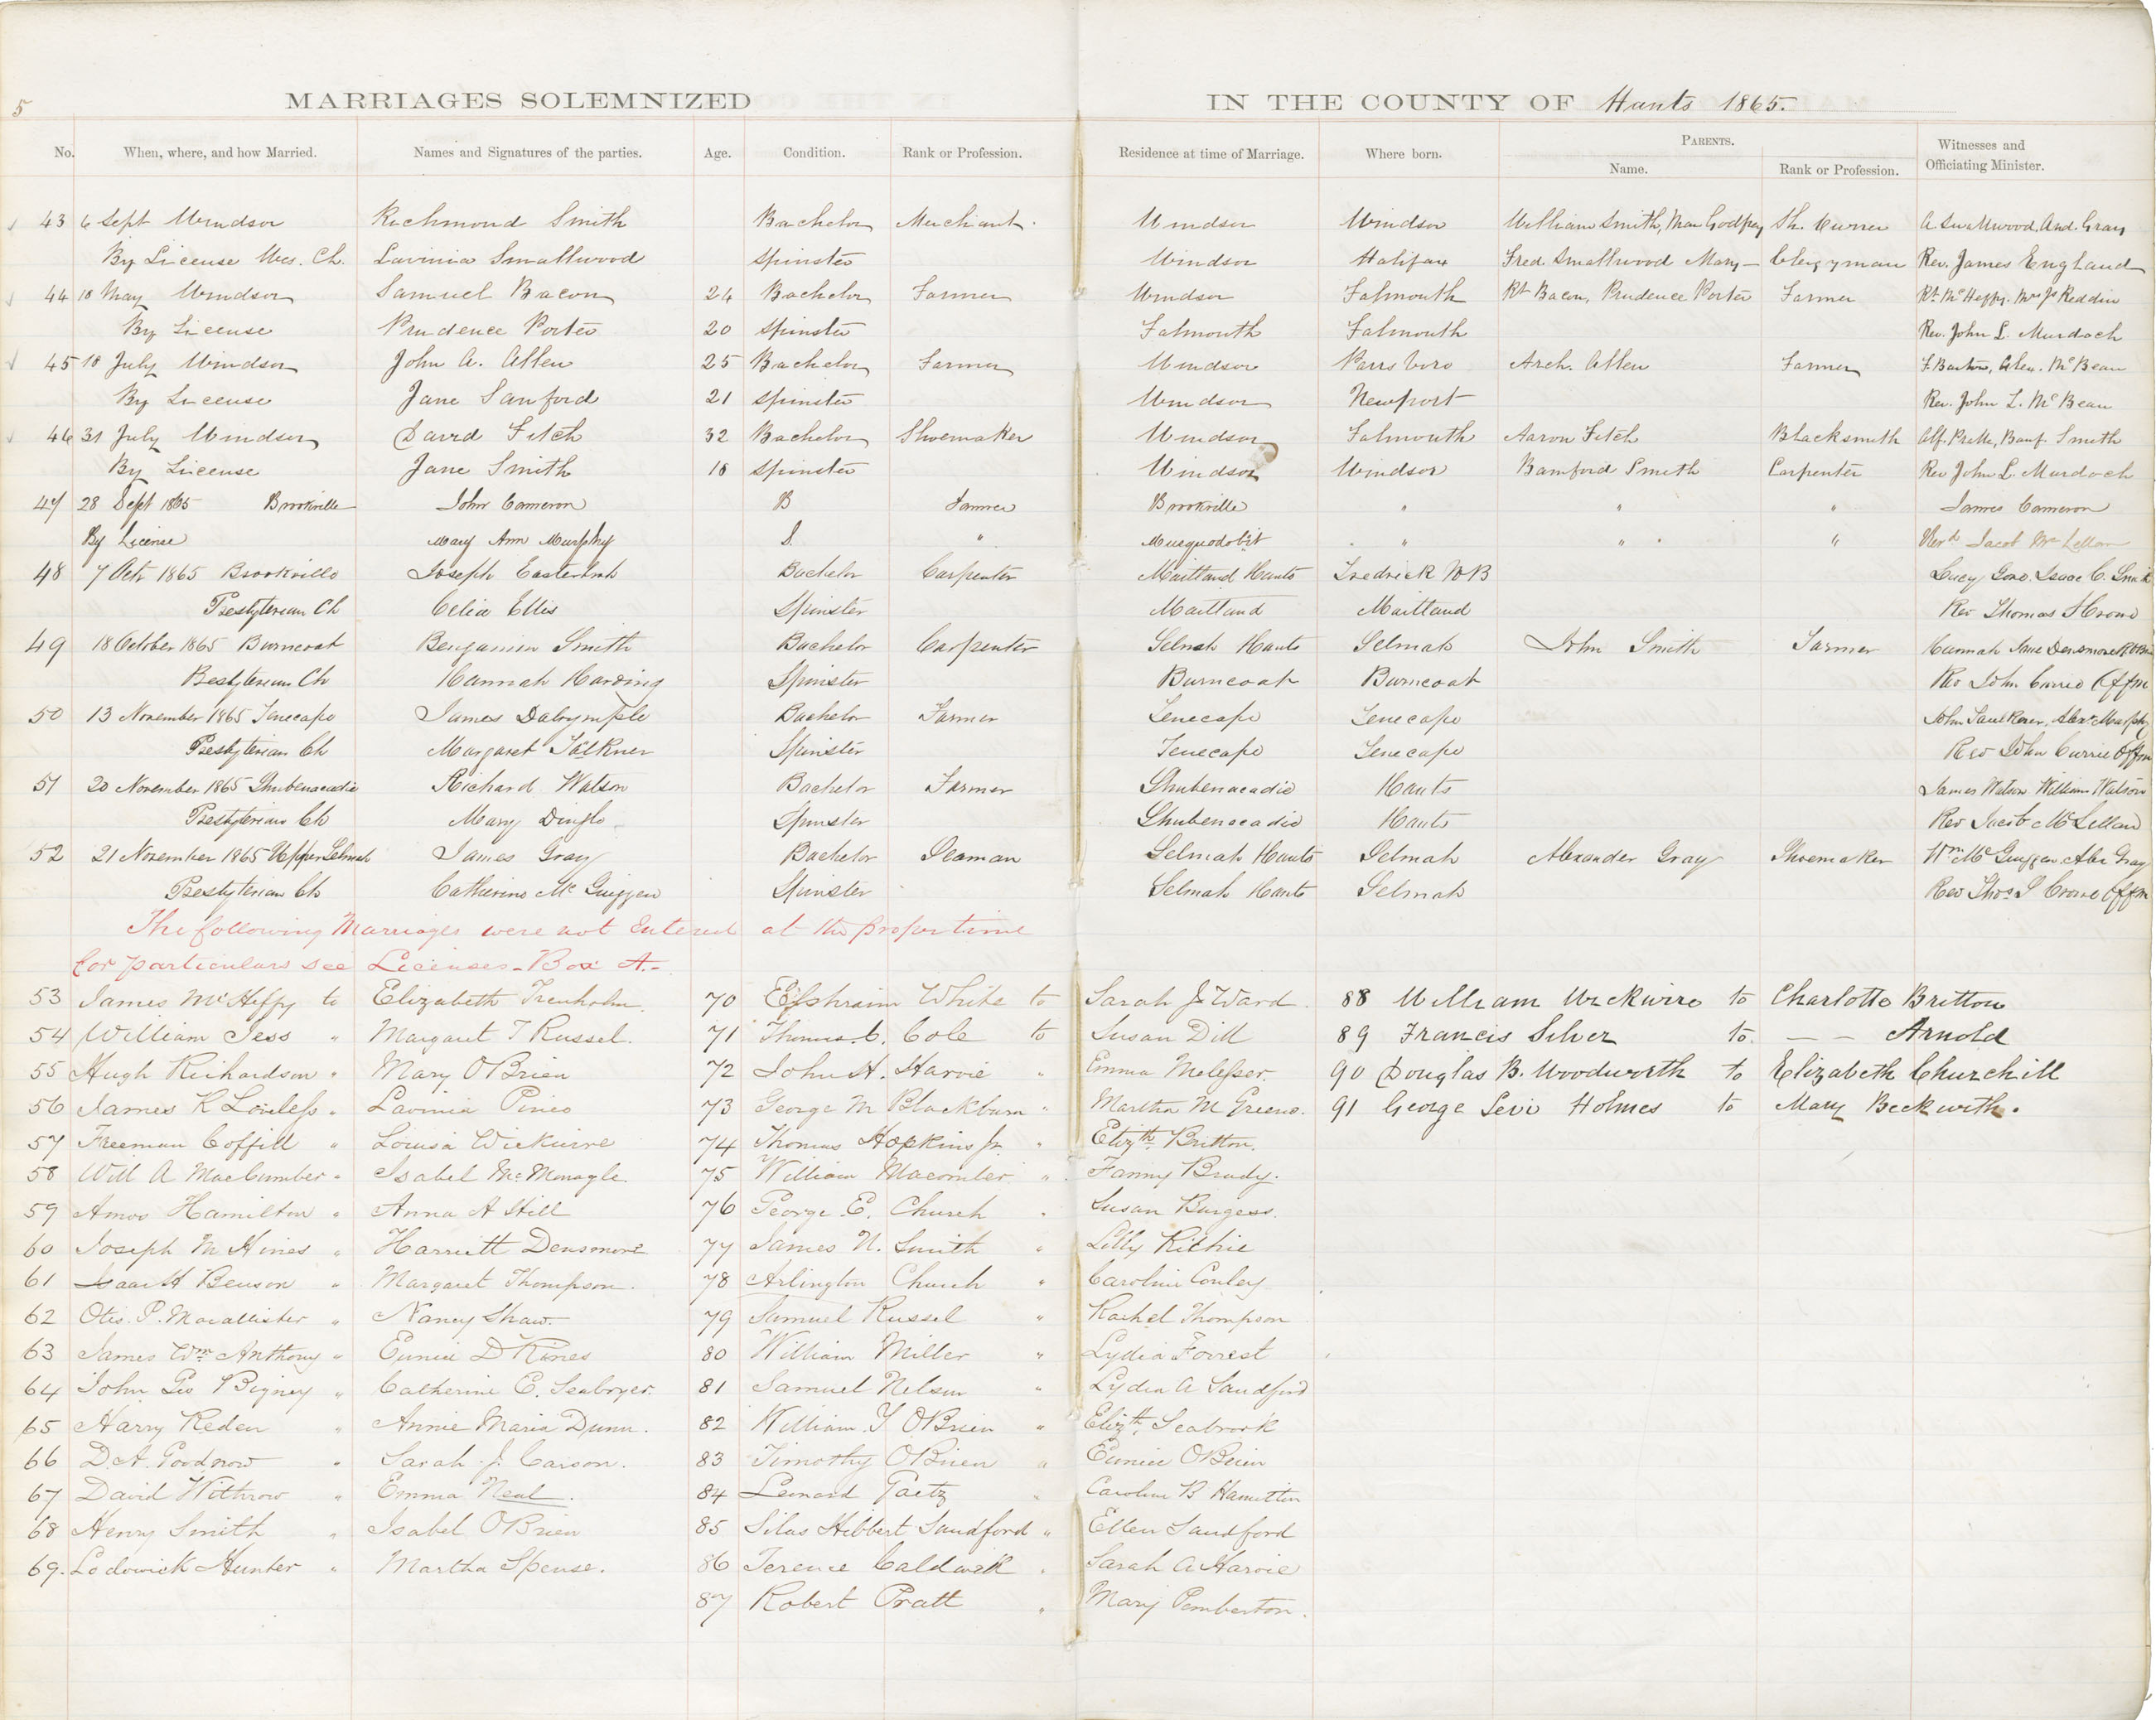 5
MARRIAGES SOLEMNIZED IN THE COUNTY OF Hants 1865.
No. When, where, and how Married. Names and Signatures of the parties. Age. Condition. Rank or Profession. Residence at time of Marriage. Where born. PARENTS. Name. Rank or Profession. Witnesses and Officiating Minister.
43 6 Sept Windsor Richmond Smith Bachelor Merchant. Windsor Windsor William Smith, Mar Godfrey Sh. Owner A Smallwood, And. Gray
By License Wes. Ch. Lavinia Smallwood Spinster Windsor Halifax Fred Smallwood Mary — Clergyman Rev. James England
44 18 May Windsor Samuel Bacon 24 Bachelor Farmer Windsor Falmouth Rt Bacon, Prudence Porter Farmer Rt McHeffy. Mrs Js Reddin
By License Prudence Porter 20 Spinster Falmouth Falmouth Rev. John L. Murdoch
45 18 July Windsor John A. Allen 25 Bachelor Farmer Windsor Parrsboro Arch. Allen Farmer F. Barton, Alex. McBean
By License Jane Sanford 21 Spinster Windsor Newport Rev. John L. McBean
46 31 July Windsor David Fitch 32 Bachelor Shoemaker Windsor Falmouth Aaron Fitch Blacksmith Alf. Pratte, Bamf. Smith
By License Jane Smith 18 Spinster Windsor Windsor Bamford Smith Carpenter Rev John L. Murdoch
47 28 Sept 1865 Brookville John Cameron B Farmer Brookville " " " James Cameron
By License Mary Ann Murphy S. " Musquodobit " " " Revd Jacob McLellan
48 7 Oct 1865 Brookville Joseph Bachelor Carpenter Maitland Hants Fredrick NB Lucy Isaac C. Smith
Presbyterian Ch Celia Ellis Spinster Maitland Maitland Rev Thomas S Crowe
49 18 October 1865 Burncoat Benjamin Smith Bachelor Carpenter Selmah Hants Selmah John Smith Farmer Hannah Jane Densmore
Presbyterian Ch Hannah Harding Spinster Burncoat Burncoat Rev John Currie Offm
50 13 November 1865 Tenecape James Dalrymple Bachelor Farmer Tenecape Tenecape John Faulkner, Alexr Murphy
Presbyterian Ch Margaret Falkner Spinster Tenecape Tenecape Rev John Currie Offm
51 20 November 1865 Shubenacadie Richard Watson Bachelor Farmer Shubenacadie Hants James Watson William Watson
Presbyterian Ch Mary Dingle Spinster Shubenacadie Hants Rev Jacob McLellan
52 21 November 1865 Upper Selmah James Gray Bachelor Seaman Selmah Hants Selmah Alexander Gray Shoemaker Wm McGuiggen Alex Gray
Presbyterian Ch Catherine McGuiggen Spinster Selmah Hants Selmah Rev Thos S Crowe Offm
The following Marriages were not Entered at the proper time
for particulars see Licenses - Box A. -
53 James McHeffy to Elizabeth Trenholm. 70 Ephraim White to Sarah J. Ward. 88 William Wickwire to Charlotte Britton
54 William Jess " Margaret T Russel. 71 Thomas C. Cole to Susan Dill 89 Francis Silver to — — Arnold
55 Hugh Richardson " Mary OBrien 72 John H. Harvie " Emma 90 Douglas B. Woodworth to Elizabeth Churchill
56 James R Lawless " Lavinia Pineo 73 George M Blackburn " Martha M Greeno. 91 George Levi Holmes to Mary Beckwith.
57 Freeman Coffill " Louisa Wickwire 74 Thomas Hopkins Jr. " Elizth Britton.
58 Will A MacCumber " Isabel McMonagle. 75 William Macomber " Fanny Brady.
59 Amos Hamilton " Anna A Hill 76 George E. Church " Susan Burgess.
60 Joseph M Hines " Harriett Densmore 77 James N. Smith " Lilly Richie
61 Isaac H Benson " Margaret Thompson. 78 Arlington Church " Caroline Conley
62 Otis. P. Macallister " Nancy Shaw. 79 Samuel Russel " Rachel Thompson
63 James Wm Anthony " Eunice D Kines 80 William Miller " Lydia Forrest
64 John Geo Bigney " Catherine E. Seaboyer. 81 Samuel Nelson " Lydia A Sandford
65 Harry Keden " Annie Maria Dunn. 82 William Y OBrien " Elizth Seabrook
66 D.A. Goodnow " Sarah J. Carson. 83 Timothy OBrien " Eunice OBrien
67 David Withrow " Emma Neal. 84 Leonard Gaetz " Caroline B Hamilton
68 Henry Smith " Isabel OBrien 85 Silas Hibbert Sandford " Ellen Sandford
69. Lodowick Hunter " Martha Spense. 86 Terence Caldwell " Sarah A Harvie
87 Robert Pratt " Mary Pemberton.